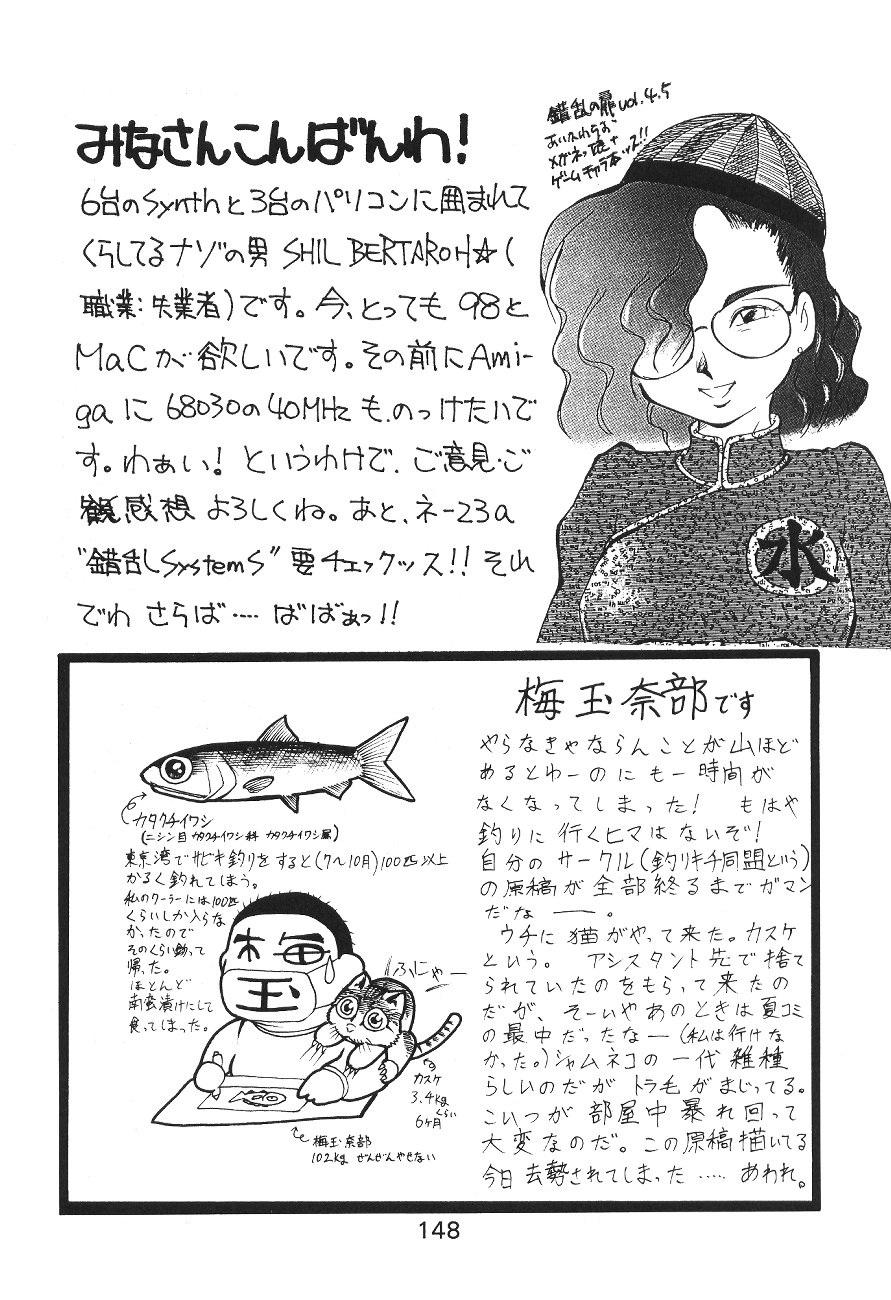 みなさんこんばんわ!
6台のSynthと3台のパソコンに囲まれて
くらしてるナゾの男 SHIL BERTAROH☆(
職業:失業者)です。今、とっても 98と
MaCが欲しいです。その前にAmi-
gaに 68030の40MHzも、のっけたいで
す。わぁい! というわけで、ご意見・ご
感想 よろしくね。あと、ネー23a
"錯乱SystemS" 要チェックッス!! それ
でわ さらば…. ばばぁっ!!
錯乱の扉 vol.4.5
ゲームキャラ本ッス!!
水
梅玉奈部です
やらなきゃならんことが山ほど
あるとゆーのにも一時間が
なくなってしまった! もはや
釣りに行くヒマはないぞ!
自分のサークル(釣りキチ同盟という)
の原稿が全部終るまでガマン
だなー。
ウチに猫がやって来た。カスケ
という。 アシスタント先で捨て
られていたのをもらって来たの
だが、そーいやあのときは夏コミ
の最中だったなー(私は行けな
かった。)シャムネコの一代雑種
らしいのだがトラ毛がまじってる。
こいつが部屋中暴れ回って
大変なのだ。この原稿描いてる
今日去勢されてしまった….. あわれ。
カタクチイワシ
(ニシン目 カタクチイワシ科 カタクチイワシ属)
東京湾でサビキ釣りをすると(7〜10月)100匹以上
かるく釣れてしまう。
私のクーラーには100匹
くらいしか入らな
かったので
そのくらい釣って
帰った。
ほとんど
南蛮漬けにして
食ってしまった。
梅
玉
ふにゃー
カスケ
3.4kg
くらい
6ヶ月
梅玉奈部
102kg ぜんぜんやせない
148